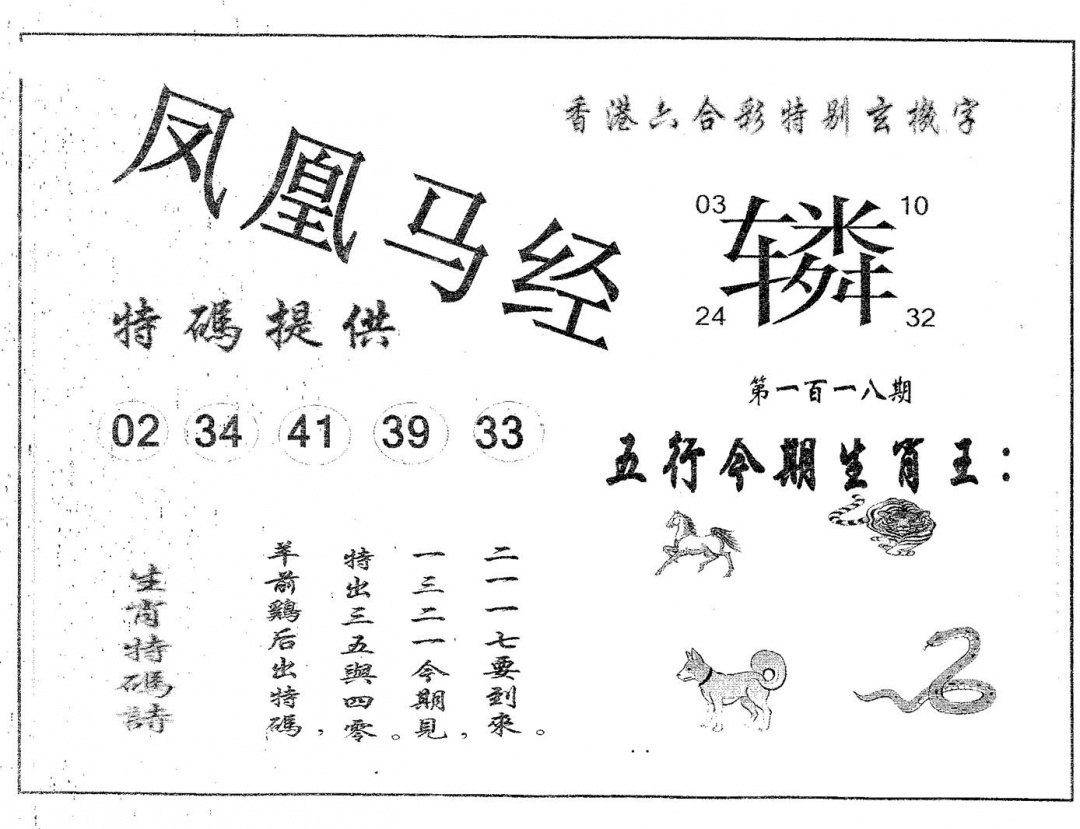 凤凰马经
香港六合彩特别玄機字
03
10
辚
24
32
特碼提供
02 34 41 39 33
第一百一八期
五行今期生肖王：
生肖特碼詩
羊前鷄后出特碼，
特出三五與四零。
一三二一今期見，
二一一七要到來。